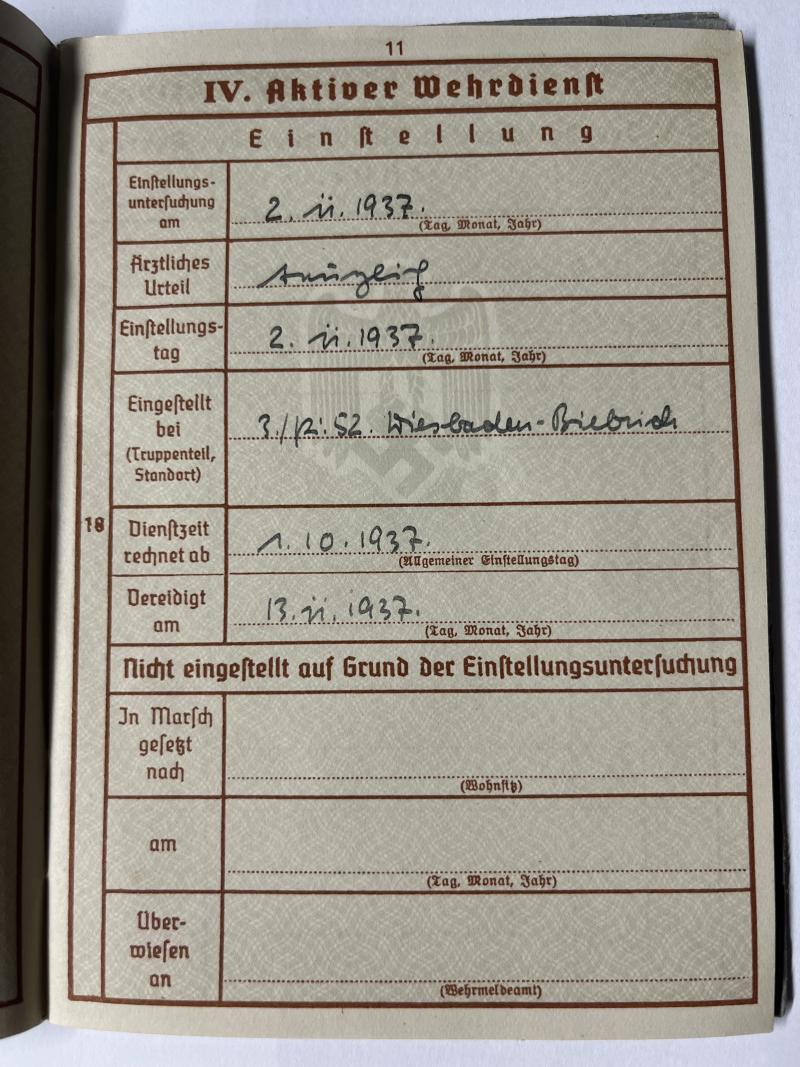 11
IV. Aktiver Wehrdienst
Einstellung
Einstellungs-
untersuchung
am
2. 11. 1937.
(Tag, Monat, Jahr)
Ärztliches
Urteil
tauglich
Einstellungs-
tag
2. 11. 1937.
(Tag, Monat, Jahr)
Eingestellt
bei
(Truppenteil,
Standort)
3./Pi. 52. Wiesbaden-Biebrich
18
Dienstzeit
rechnet ab
1. 10. 1937.
(Allgemeiner Einstellungstag)
Vereidigt
am
13. 11. 1937.
(Tag, Monat, Jahr)
Nicht eingestellt auf Grund der Einstellungsuntersuchung
In Marsch
gesetzt
nach
(Wohnsitz)
am
(Tag, Monat, Jahr)
Über-
wiesen
an
(Wehrmeldeamt)